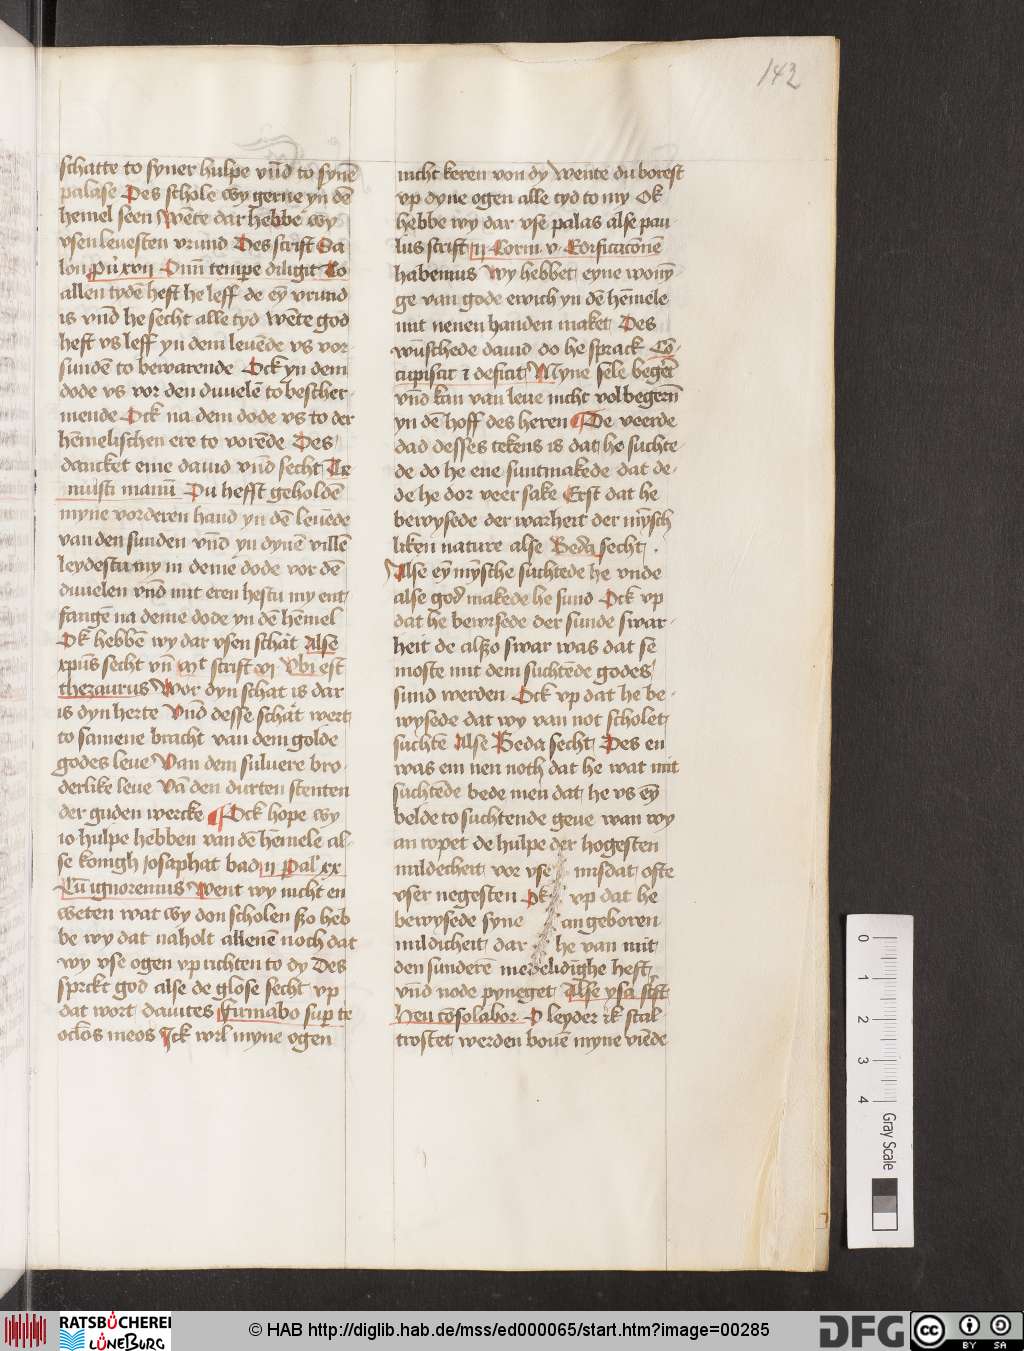 142
schatte to syner hulpe vn̄d to synē
palase Des schole wy gerne yn dē
hemel seen Wēte dar hebbē wy
vsen leuesten vrund Des scrift Sa
lon Pū xvii Omī tempe diligit To
allen tydē heft he leff de eȳ vrund
is vn̄d he secht alle tyd Wēte god
heft vs leff yn dem leuēde vs vor
sundē to bewarende Ock yn dem
dode vs vor den duuelē to bescher
mende Ock na dem dode vs to der
hēmelischen ere to vorēde Des
dancket eme dauid vn̄d secht Te
nuisti manū Du hefft geholdē
myne vorderen hand yn dē leuēde
van den sunden vn̄d yn dynē willē
leydestu my in deme dode vor dē
duuelen vn̄d mit eren hestu my ent
fangē na deme dode yn dē hēmel
Ok hebbē wy dar vsen schat Alse
xpūs secht vn̄ mt scrift vi Vbi est
thezaurus Wor dyn schat is dar
is dyn herte Vn̄d desse schat wert
to samene bracht van dem golde
godes leue Van dem suluere bro
derlike leue Vā den durten stenten
der guden wercke Ock hope wy
io hulpe hebben van dē hēmele al
se konigh Josaphat bad ii Pal' xx
Cū ignoremus Went wy nicht en
weten wat wy don scholen szo heb
be wy dat naholt allenē noch dat
wy vse ogen vp richten to dy Des
sprickt god alse de glose secht vp
dat wort dauites Firmabo sup te
oclos meos Ick wil myne ogen
nicht keren von dy Wente du borest
vp dyne ogen alle tyd to my Ok
hebbe wy dar vse palas alse pau
lus scrift ii Corin v Edificacōnē
habemus Wy hebbet eyne wonȳ
ge van gode ewich yn dē hēmele
mit nenen handen maket Des
wūschede dauid do he sprack Cō
cupiscit et deficit Myne sele begeʳt
vn̄d kan van leue nicht volbegern̄
yn dē hoff des heren De veerde
dad desses tekens is dat he suchte
de do he ene suntmakede dat de
de he dor veer sake Erst dat he
bewysede der warheit der mȳsch
liken nature alse Beda secht
Alse eȳ mȳsche suchtede he vnde
alse god makede he sund Ock vp
dat he bewisede der sunde swar
heit de alszo swar was dat se
moste mit dem suchtēde godes
sund werden Ock vp dat he be
wysede dat wy van not scholet
suchtē Alse Beda secht Des en
was em nen noth dat he wat mit
suchtēde bede men dat he vs eȳ
belde to suchtende geue wan wy
an ropet de hulpe der hogesten
mildecheit vor vse misdat ofte
vser negesten Ok vp dat he
bewysede syne angeboren
mildicheit dar he van mit
den sunderē medelidīghe heft
vn̄d node pyneget Alse ysa sc̄ft
Heu cōsolabor O leyder ik scal
trostet werden bouē myne viēde
0
1
2
3
4
Gray Scale
RATSBÜCHEREI
LÜNEBURG
© HAB http://diglib.hab.de/mss/ed000065/start.htm?image=00285
DFG
cc BY SA